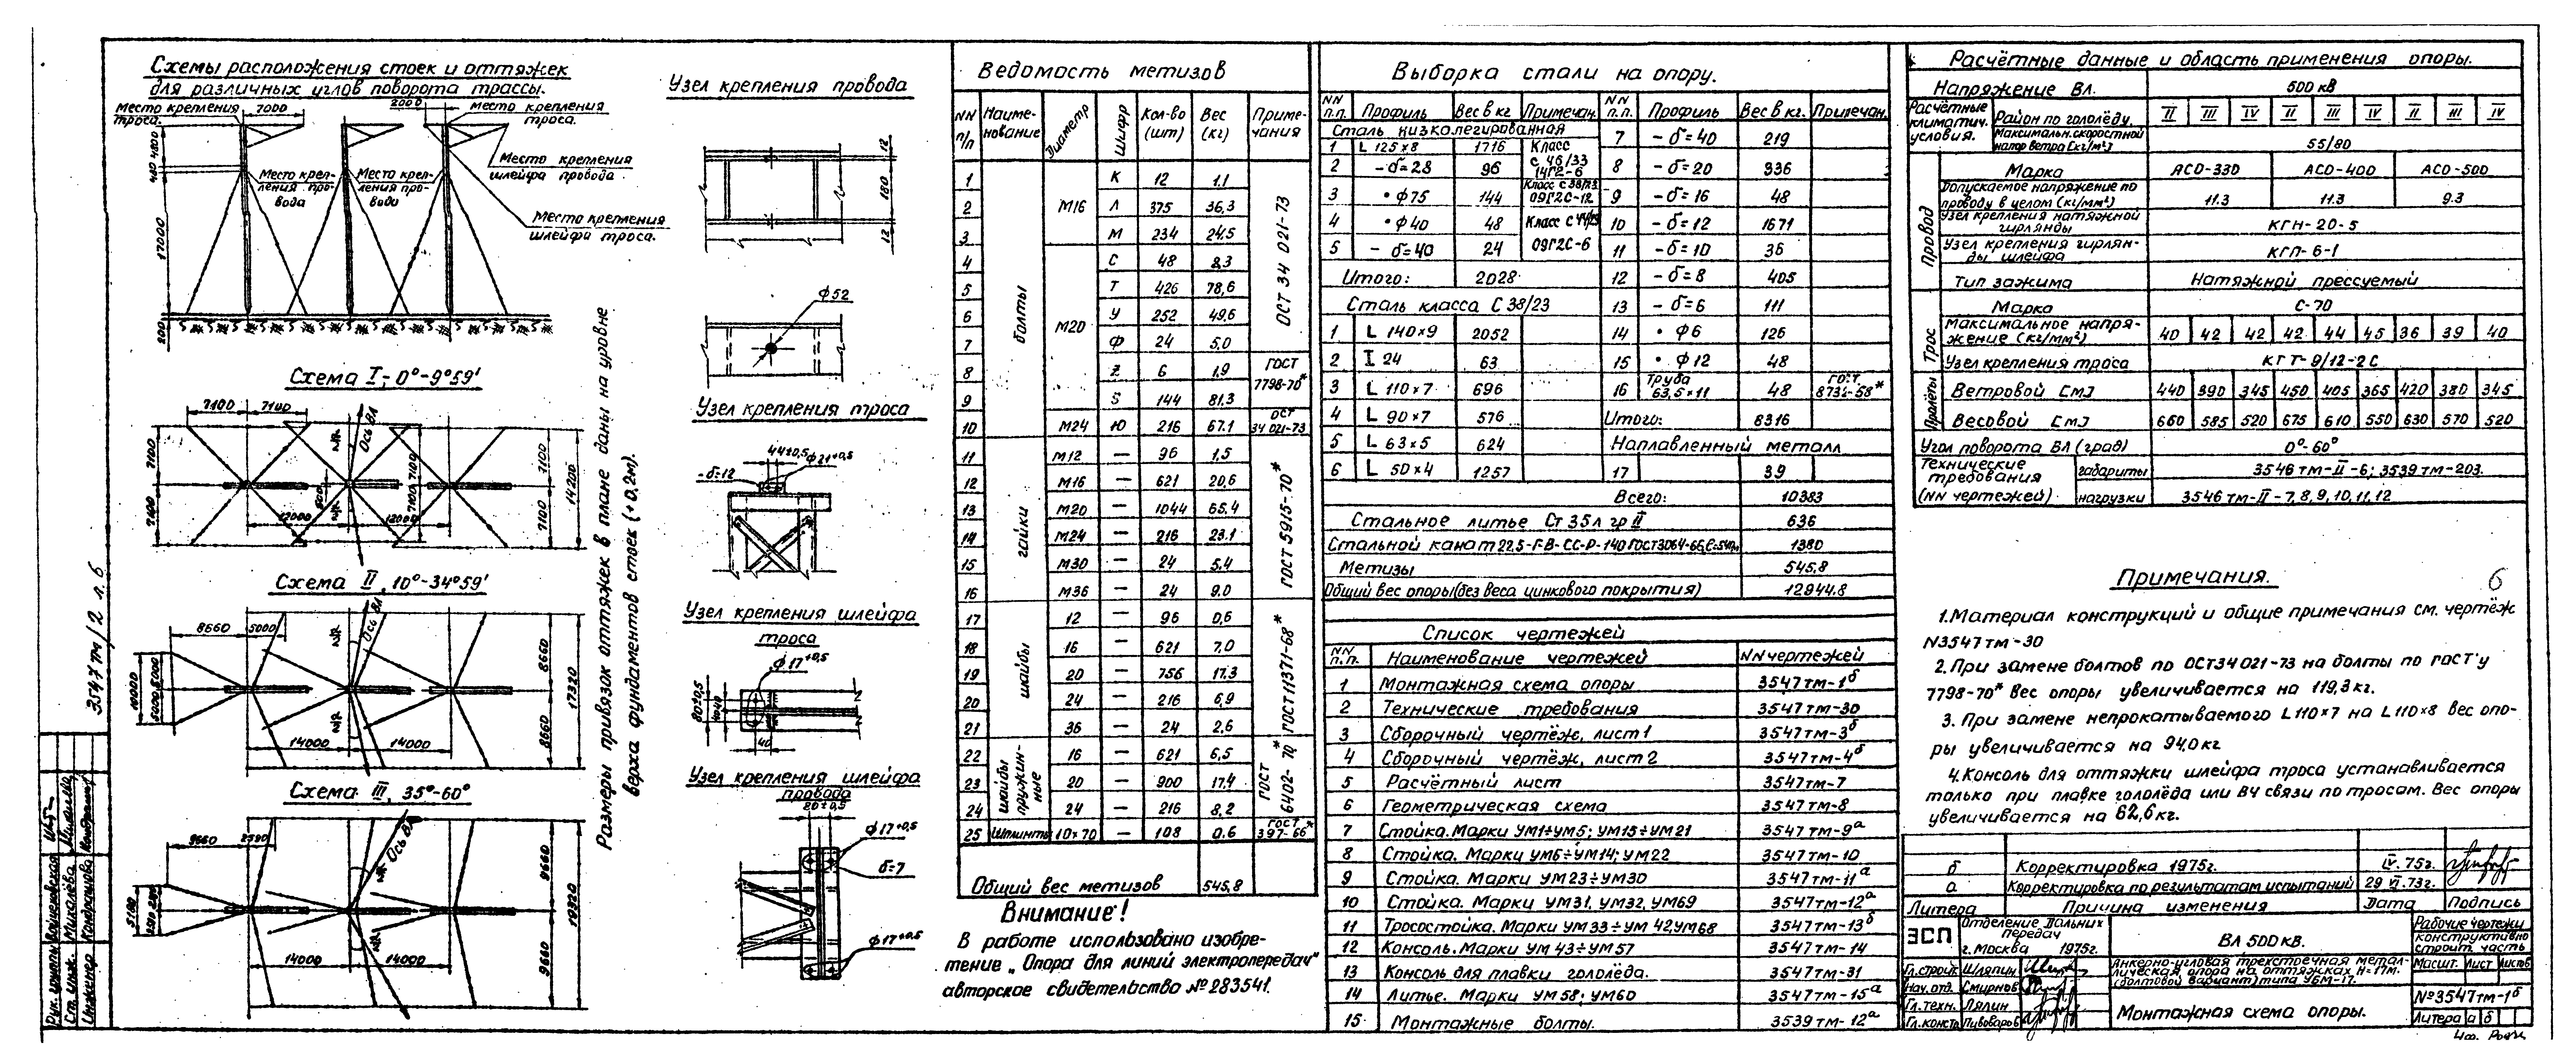 Схемы расположения стоек и оттяжек
для различных углов поворота трассы.
Место крепления
троса.
7000
2000
Место крепления
троса.
Место крепления
шлейфа провода.
Место креп-
ления про-
вода
Место креп-
ления про-
вода
Место крепления
шлейфа троса.
17000
Схема I, 0°-9°59'
7100 7100
Ось ВЛ
7100 7100
12000 12000
7100 7100 14200
Схема II, 10°-34°59'
8660 5000
Ось ВЛ
10000
5000 5000
14000 14000
8660 8660 17320
Схема III, 35°-60°
9660 2590
Ось ВЛ
5190
14000 14000
9660 9660 19320
Размеры привязок оттяжек в плане даны на уровне
верха фундаментов стоек (±0,2м).
Узел крепления провода
12 180 12
ф52
Узел крепления троса
44±0,5 ф21+0,5
-δ=12
Узел крепления шлейфа
троса
ф17+0,5
80±0,5
40
Узел крепления шлейфа
провода
80±0,5
ф17+0,5
δ=7
ф17+0,5
Ведомость метизов
NN п/п Наиме-нование Диаметр Шифр Кол-во (шт) Вес (кг) Приме-чания
болты
ОСТ 34 021-73
1 М16 К 12 1.1
2 Л 375 36,3
3 М 234 24,5
4 М20 С 48 8,3
5 Т 426 78,6
6 У 252 49,6
7 Ф 24 5,0
8 Z 6 1,9 ГОСТ 7798-70*
9 S 144 81,3
10 М24 Ю 216 67.1 ОСТ 34 021-73
гайки
ГОСТ 5915-70*
11 М12 — 96 1,5
12 М16 — 621 20,6
13 М20 — 1044 65.4
14 М24 — 216 23.1
15 М30 — 24 5,4
16 М36 — 24 9.0
шайбы
ГОСТ 11371-68*
17 12 — 96 0,6
18 16 — 621 7,0
19 20 — 756 17.3
20 24 — 216 6,9
21 36 — 24 2,6
шайбы пружин-ные
ГОСТ 6402-70*
22 16 — 621 6,5
23 20 — 900 17,4
24 24 — 216 8,2
25 Шплинты 10×70 — 108 0.6 ГОСТ 397-66*
Общий вес метизов 545,8
Внимание!
В работе использовано изобре-
тение „Опора для линий электропередач"
авторское свидетельство №283541.
Выборка стали на опору.
NN п.п. Профиль Вес в кг Примечан. NN п.п. Профиль Вес в кг. Примечан.
Сталь низколегированная 7 -δ=40 219
1 L 125×8 1716 Класс с 46/33 14Г2-6
2 -δ=28 96 8 -δ=20 936
3 •ф75 144 Класс с 38/23 09Г2С-12 9 -δ=16 48
4 •ф40 48 Класс с 44/29 09Г2С-6 10 -δ=12 1671
5 -δ=40 24 11 -δ=10 36
Итого: 2028 12 -δ=8 405
Сталь класса С 38/23 13 -δ=6 111
1 L 140×9 2052 14 • ф6 126
2 I 24 63 15 • ф12 48
3 L 110×7 696 16 Труба 63,5×11 48 ГОСТ 8732-58*
4 L 90×7 576 Итого: 8316
5 L 63×5 624 Наплавленный металл
6 L 50×4 1257 17 39
Всего: 10383
Стальное литье Ст 35л гр II 636
Стальной канат 22,5-Г-В-СС-Р-140 ГОСТ 3064-66 1380
Метизы 545.8
Общий вес опоры (без веса цинкового покрытия) 12944.8
Список чертежей
NN п.п. Наименование чертежей NN чертежей
1 Монтажная схема опоры 3547тм-1б
2 Технические требования 3547тм-30
3 Сборочный чертёж, лист 1 3547тм-3б
4 Сборочный чертёж, лист 2 3547тм-4б
5 Расчётный лист 3547тм-7
6 Геометрическая схема 3547тм-8
7 Стойка. Марки УМ1÷УМ5; УМ15÷УМ21 3547тм-9а
8 Стойка. Марки УМ6÷УМ14; УМ22 3547тм-10
9 Стойка. Марки УМ23÷УМ30 3547тм-11а
10 Стойка. Марки УМ31, УМ32, УМ69 3547тм-12а
11 Тросостойка. Марки УМ33÷УМ42, УМ68 3547тм-13б
12 Консоль. Марки УМ43÷УМ57 3547тм-14
13 Консоль для плавки гололёда. 3547тм-31
14 Литье. Марки УМ58; УМ60 3547тм-15а
15 Монтажные болты. 3539тм-12а
Расчётные данные и область применения опоры.
Напряжение Вл. 500 кв
Расчётные климатич. условия. Район по гололёду. II III IV II III IV II III IV
Максимальн. скоростной напор ветра (кг/м²) 55/80
Провод
Марка АСО-330 АСО-400 АСО-500
Допускаемое напряжение по проводу в целом (кг/мм²) 11.3 11.3 9.3
Узел крепления натяжной гирлянды КГН-20-5
Узел крепления гирлян-ды шлейфа КГП-6-1
Тип зажима Натяжной прессуемый
Трос
Марка С-70
Максимальное напря-жение (кг/мм²) 40 42 42 42 44 45 36 39 40
Узел крепления троса КГТ-9/12-2С
Пролёты
Ветровой [м] 440 390 345 450 405 365 420 380 345
Весовой [м] 660 585 520 675 610 550 630 570 520
Угол поворота ВЛ (град) 0°-60°
Технические требования (NN чертежей) габариты 3546тм-II-6; 3539тм-203.
нагрузки 3546тм-II-7,8,9,10,11,12
Примечания.
6
1. Материал конструкций и общие примечания см. чертёж
N3547тм-30
2. При замене болтов по ОСТ34 021-73 на болты по ГОСТ'у
7798-70* вес опоры увеличивается на 119,3кг.
3. При замене непрокатываемого L110×7 на L110×8 вес опо-
ры увеличивается на 94,0кг
4. Консоль для оттяжки шлейфа троса устанавливается
только при плавке гололёда или ВЧ связи по тросам. Вес опоры
увеличивается на 62,6кг.
б Корректировка 1975г. IV. 75г.
а Корректировка по результатам испытаний 29 VI.73г.
Литера Причина изменения Дата Подпись
ЭСП Отделение Дальних передач
г. Москва 1975г.
ВЛ 500кв.
Рабочие чертежи
Конструктивно строит. часть
Гл. строит. Шляпин
Нач. отд. Смирнов
Гл. техн. Ляпин
Гл. констр. Пивоваров
Анкерно-угловая трёхстоечная метал-
лическая опора на оттяжках Н=17м.
(болтовой вариант) типа УБМ-17.
Масшт. Лист Листов
Монтажная схема опоры.
№3547тм-1б
Литера а б
3547тм/2 л.6
Рук. группы Войнековская
Ст. инж. Михалёва
Инженер Кондрашова